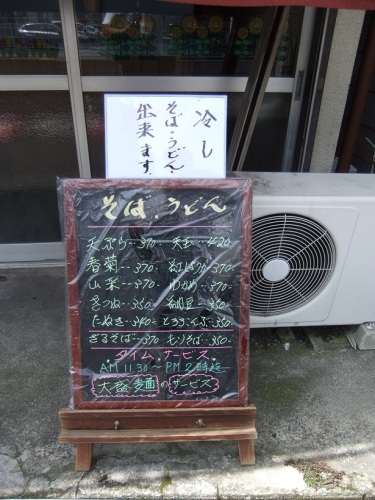 冷し
そば・うどん.
出来ます.
そば.うどん
天ぷら‥370 天玉‥420
春菊‥‥370. 紅しょうが370.
山菜‥‥370- わかめ‥370-
きつね‥350. 納豆‥350.
たぬき‥340- とろろこんぶ‥350.
ざるそば‥370 もりそば‥350
タイム.サービス
AM 11.30〜PM 2時迄
大盛 麺のサービス